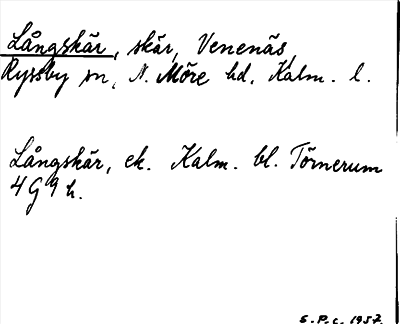 Långskär, skär, Venenäs,
Ryssby sn, N. Möre hd. Kalm. l.
Långskär, ek. Kalm. bl. Törnerum
4G9h.
S.P.C. 1957.